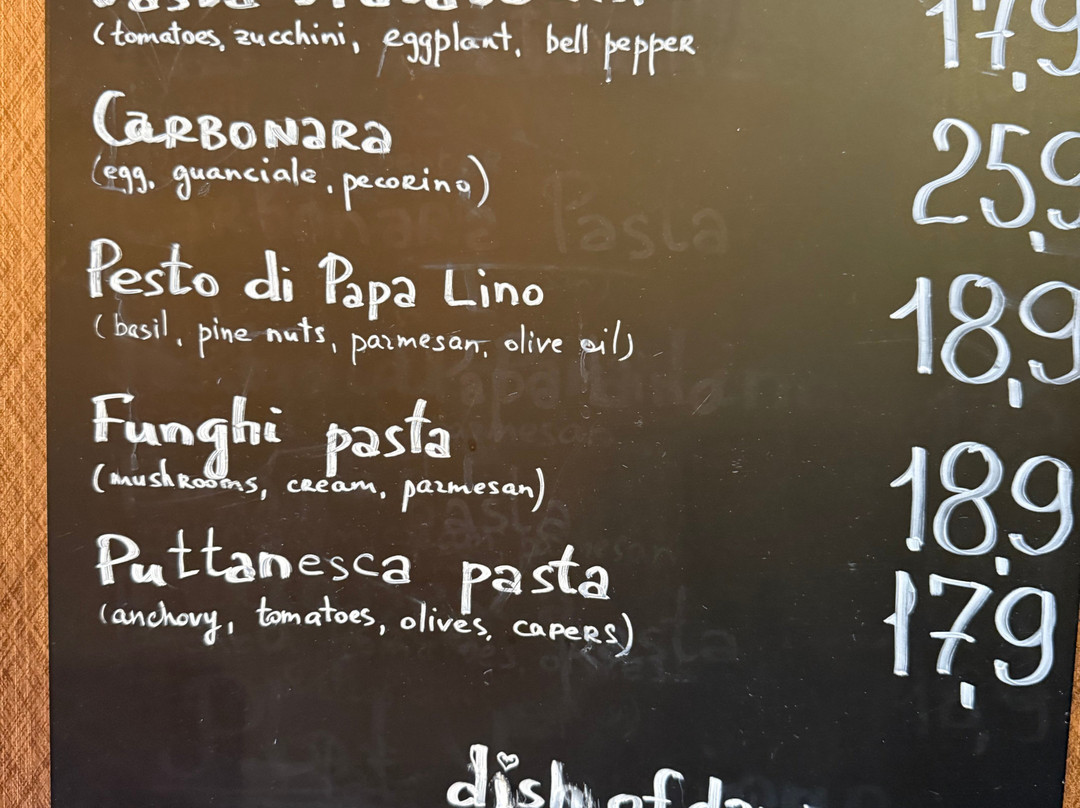 (tomatoes, zucchini, eggplant, bell pepper 17,9
Carbonara 25,9
(egg, guanciale, pecorino)
Pesto di Papa Lino 18,9
(basil, pine nuts, parmesan, olive oil)
Funghi pasta 18,9
(mushrooms, cream, parmesan)
Puttanesca pasta 17,9
(anchovy, tomatoes, olives, capers)
dish of day